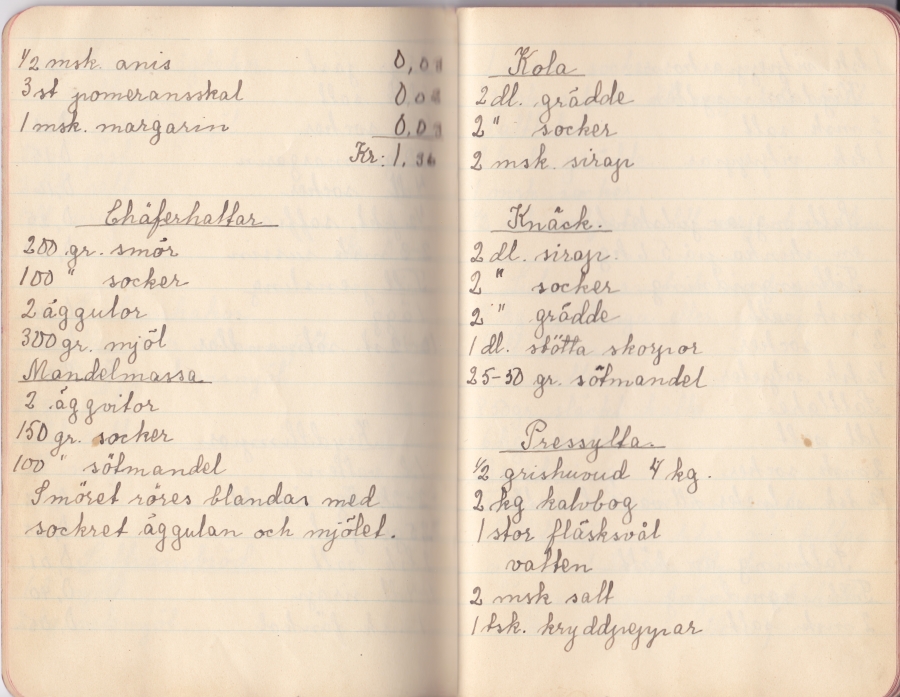 1/2 msk. anis 0,0
3 st pomeransskal 0,0
1 msk. margarin 0,0
Kr: 1,
Chäferhattar
200 gr. smör
100 " socker
2 äggulor
300 gr. mjöl
Mandelmassa
2 äggvitor
150 gr. socker
100 " sötmandel
Smöret röres blandas med
sockret äggulan och mjölet.
Kola
2 dl. grädde
2 " socker
2 msk. sirap
Knäck.
2 dl. sirap.
2 " socker
2 " grädde
1 dl. stötta skorpor
25-30 gr. sötmandel
Pressylta.
1/2 grishuvud 4 kg.
2 kg kalvbog
1 stor fläsksvål
vatten
2 msk salt
1 tsk. kryddpeppar